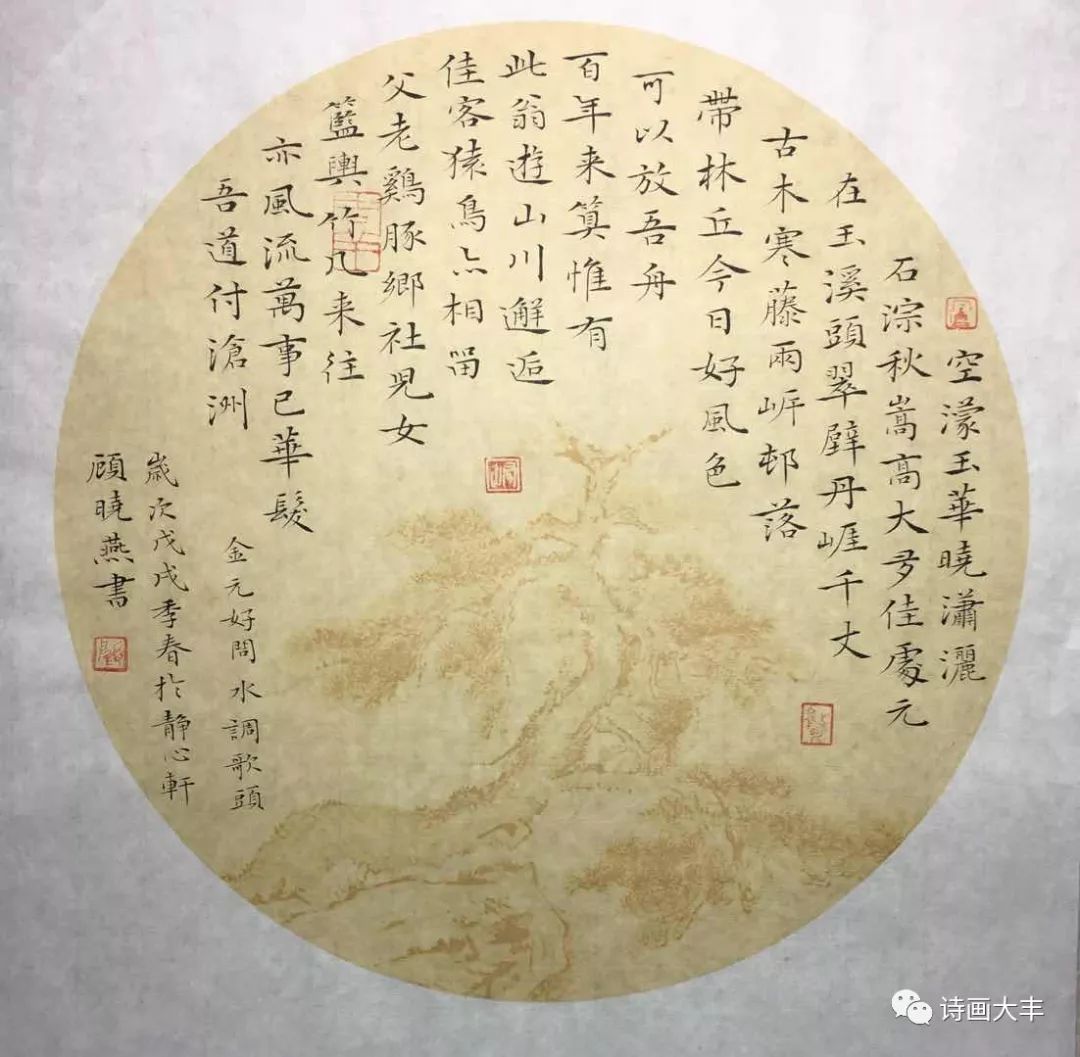 空濛玉華曉瀟灑
石淙秋嵩高大多佳處元
在玉溪頭翠壁丹崕千丈
古木寒藤兩岸邨落
帶林丘今日好風色
可以放吾舟
百年来筭惟有
此翁遊山川邂逅
佳客猿鳥亦相留
父老鷄豚鄉社児女
籃輿竹几来往
亦風流萬事已華髮
吾道付滄洲
金元好問水調歌頭
歲次戊戌季春於靜心軒
顧曉燕書
诗画大丰